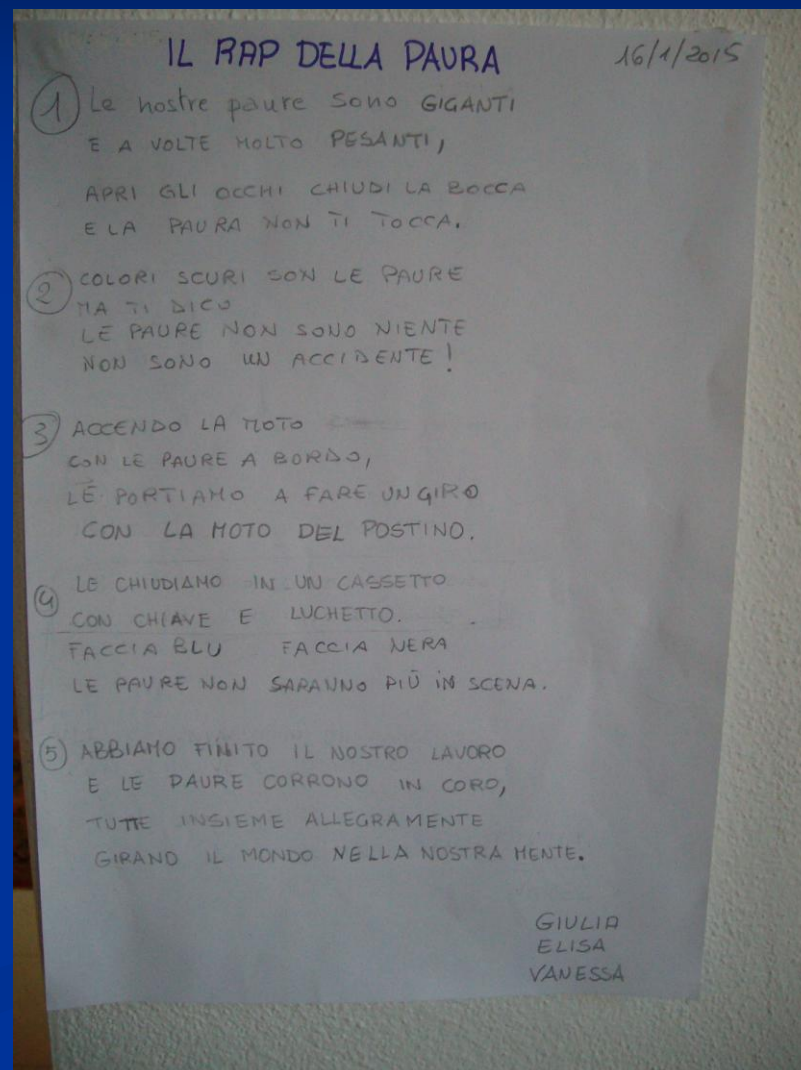 IL RAP DELLA PAURA 16/1/2015
1 Le nostre paure sono GIGANTI
E A VOLTE MOLTO PESANTI,
APRI GLI OCCHI CHIUDI LA BOCCA
E LA PAURA NON TI TOCCA.
2 COLORI SCURI SON LE PAURE
MA TI DICO
LE PAURE NON SONO NIENTE
NON SONO UN ACCIDENTE!
3 ACCENDO LA MOTO
CON LE PAURE A BORDO,
LE PORTIAMO A FARE UN GIRO
CON LA MOTO DEL POSTINO.
4 LE CHIUDIAMO IN UN CASSETTO
CON CHIAVE E LUCHETTO.
FACCIA BLU FACCIA NERA
LE PAURE NON SARANNO PIÙ IN SCENA.
5 ABBIAMO FINITO IL NOSTRO LAVORO
E LE PAURE CORRONO IN CORO,
TUTTE INSIEME ALLEGRAMENTE
GIRANO IL MONDO NELLA NOSTRA MENTE.
GIULIA
ELISA
VANESSA